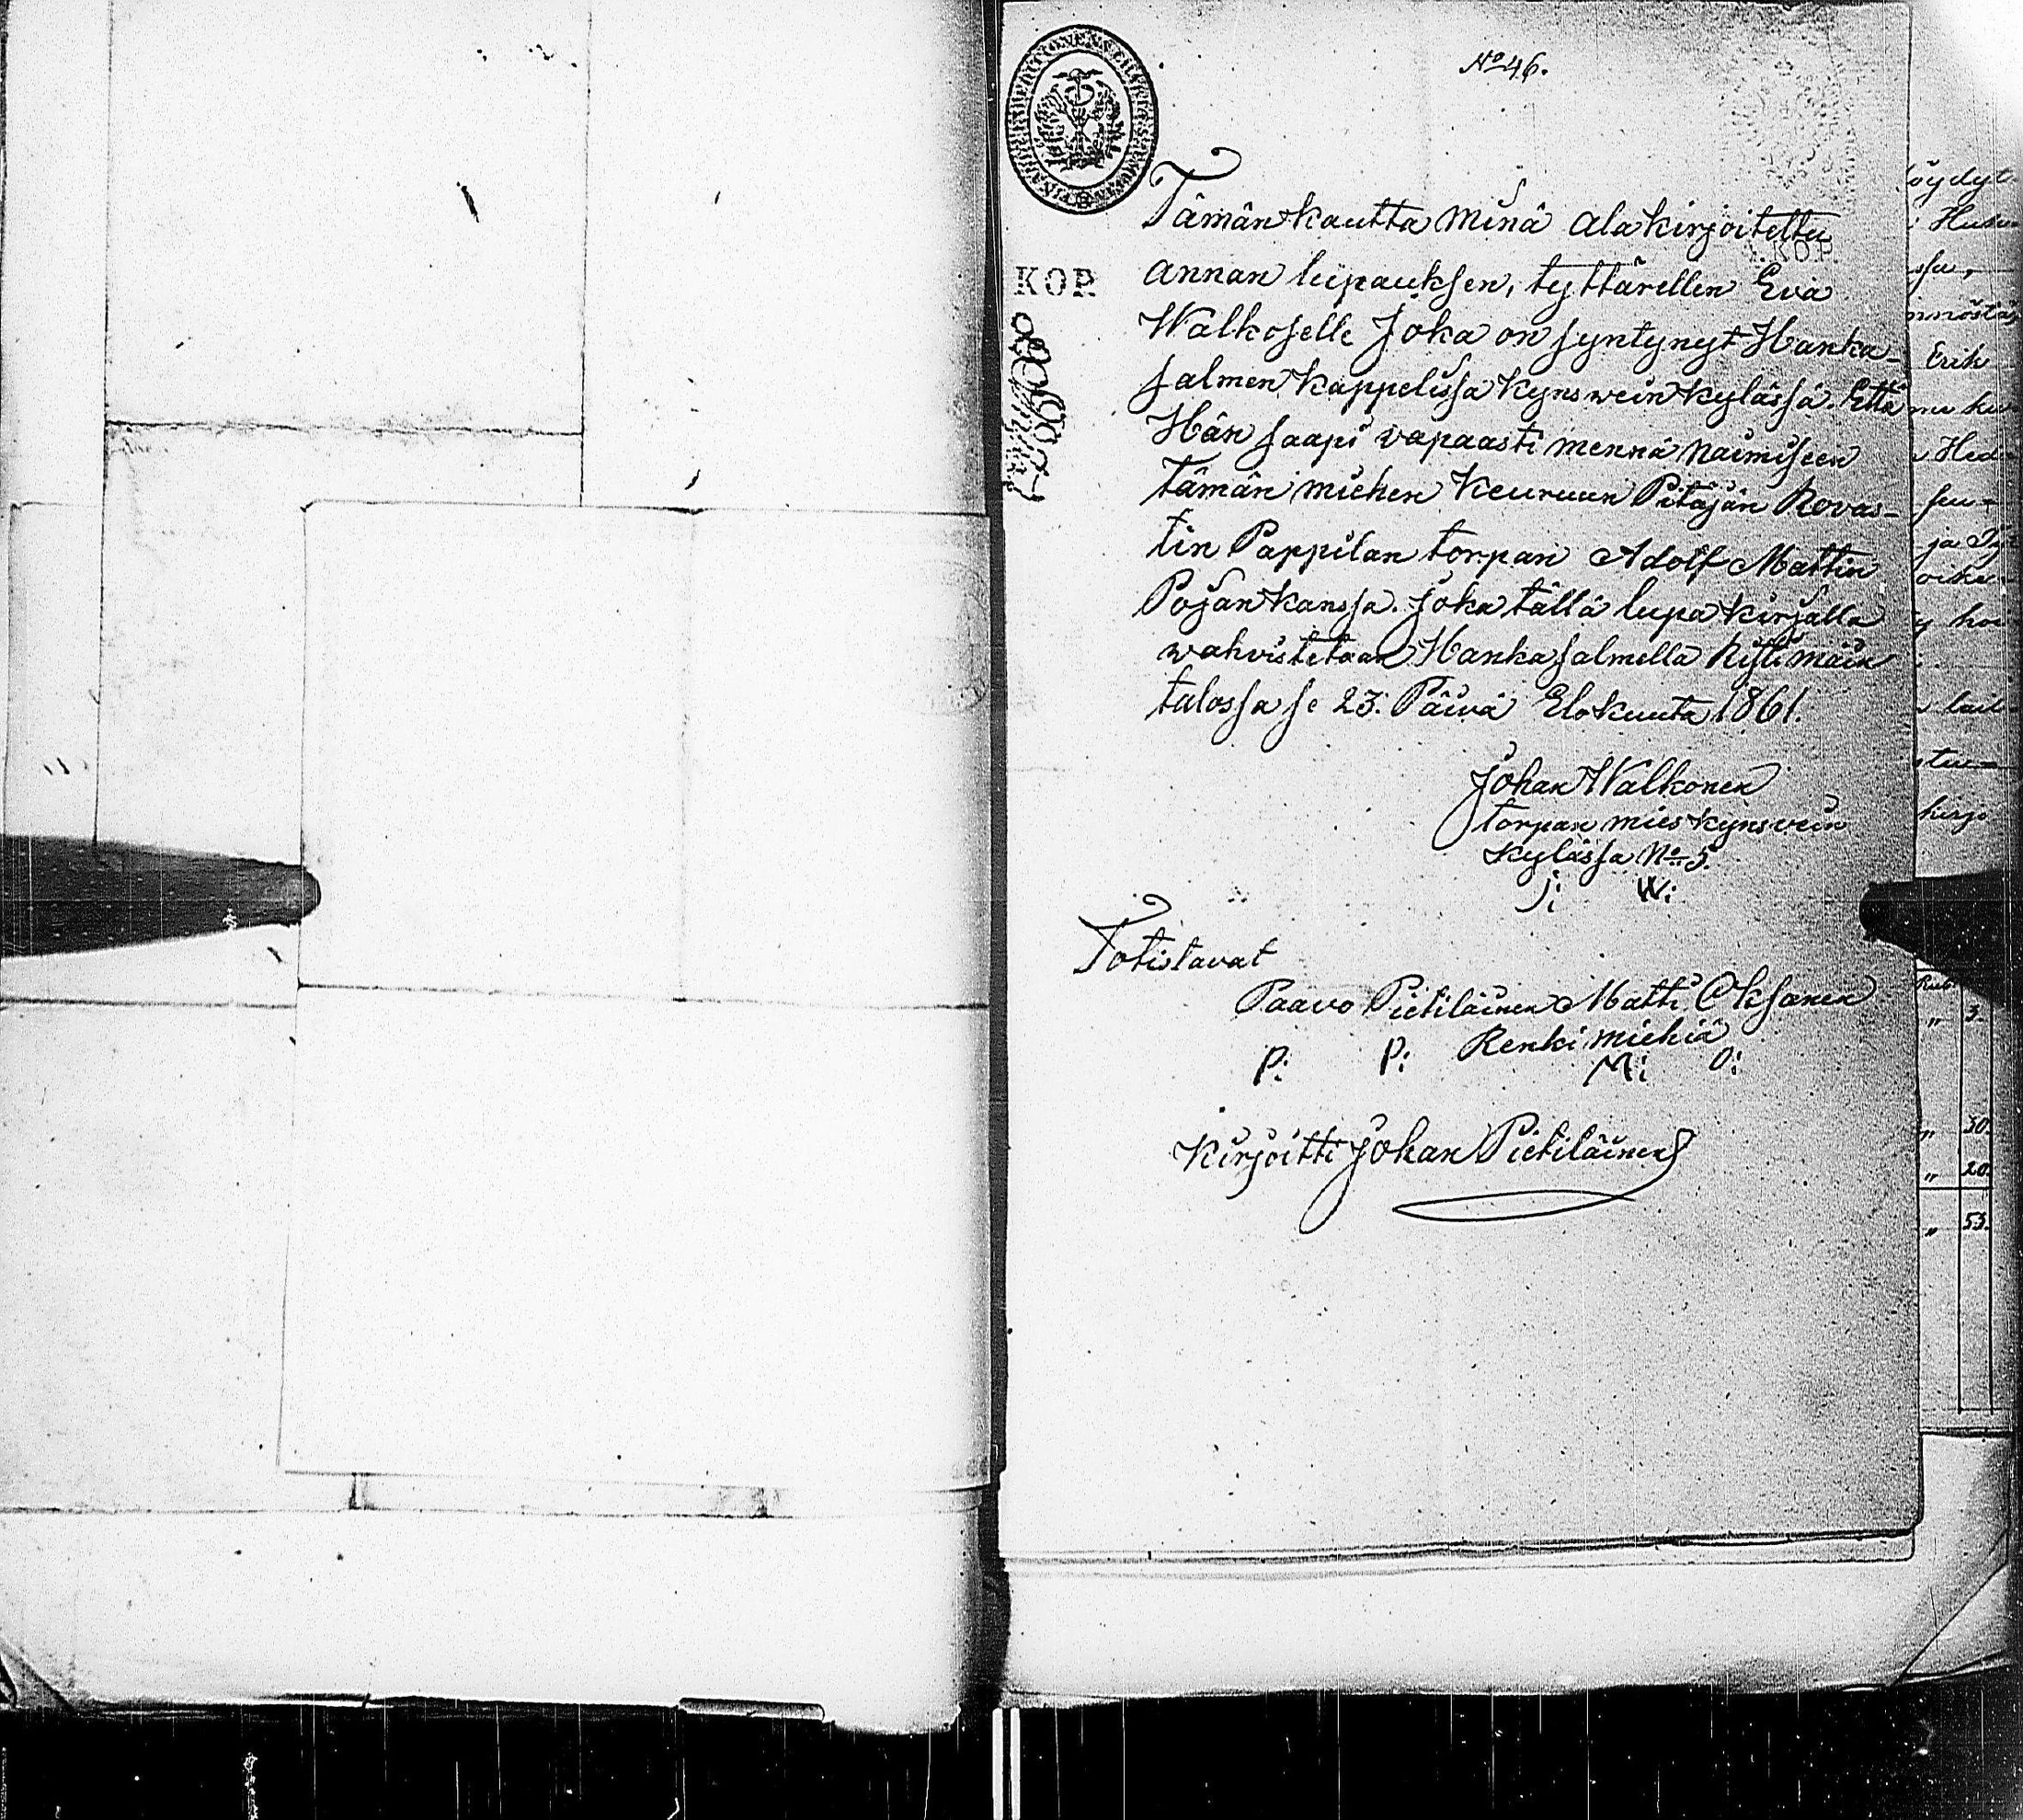 No 46.
Tämän kautta minä ala kirjoitettu
annan lupauksen, tyttärellen Eva
Walkoselle joka on syntynyt Hanka-
salmen kappelissa kynsivein kylässä. Että
Hän saapi vapaasti mennä naimiseen
tämän miehen Keuruun Pitäjän Rovas-
tin Pappilan torpan Adolf Mattin
Pojan kanssa. joka tällä lupa kirjalla
wahvistetaan Hankasalmella Ristimäin
talossa se 23. Päivä Elokuuta 1861.
Johan Walkonen
torpan mies kynsivein
kylässä No 5.
J: W:
Totistavat
Paavo Pietiläinen Matti Oksanen
Renki miehiä
P: P: M: O:
Kirjoitti Johan Pietiläinen
KOP.
KOP.
Erik
ja
kirjo
3.
30.
20.
53.